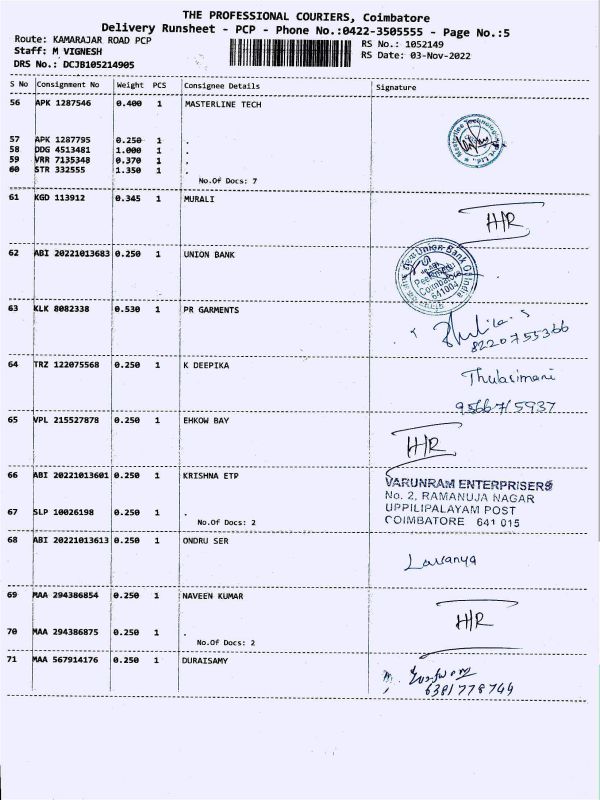 THE PROFESSIONAL COURIERS, Coimbatore
Delivery Runsheet - PCP - Phone No.:0422-3505555 - Page No.:5
Route: KAMARAJAR ROAD PCP RS No.: 1052149
Staff: M VIGNESH RS Date: 03-Nov-2022
DRS No.: DCJB105214905
S No Consignment No Weight PCS Consignee Details Signature
56 APK 1287546 0.400 1 MASTERLINE TECH
57 APK 1287795 0.250 1 .
58 DDG 4513481 1.000 1 .
59 VRR 7135348 0.370 1 .
60 STR 332555 1.350 1 .
No.Of Docs: 7
61 KGD 113912 0.345 1 MURALI
H/R
62 ABI 20221013683 0.250 1 UNION BANK
Union Bank Of India
Coimbatore
641004
63 KLK 8082338 0.530 1 PR GARMENTS
8220755366
64 TRZ 122075568 0.250 1 K DEEPIKA
Thulasimani
9566715937
65 VPL 215527878 0.250 1 EHKOW BAY
H/R
66 ABI 20221013601 0.250 1 KRISHNA ETP
VARUNRAM ENTERPRISERS
No. 2, RAMANUJA NAGAR
67 SLP 10026198 0.250 1 .
UPPILIPALAYAM POST
No.Of Docs: 2
COIMBATORE 641 015
68 ABI 20221013613 0.250 1 ONDRU SER
Lavanya
69 MAA 294386854 0.250 1 NAVEEN KUMAR
H/R
70 MAA 294386875 0.250 1 .
No.Of Docs: 2
71 MAA 567914176 0.250 1 DURAISAMY
6381778749